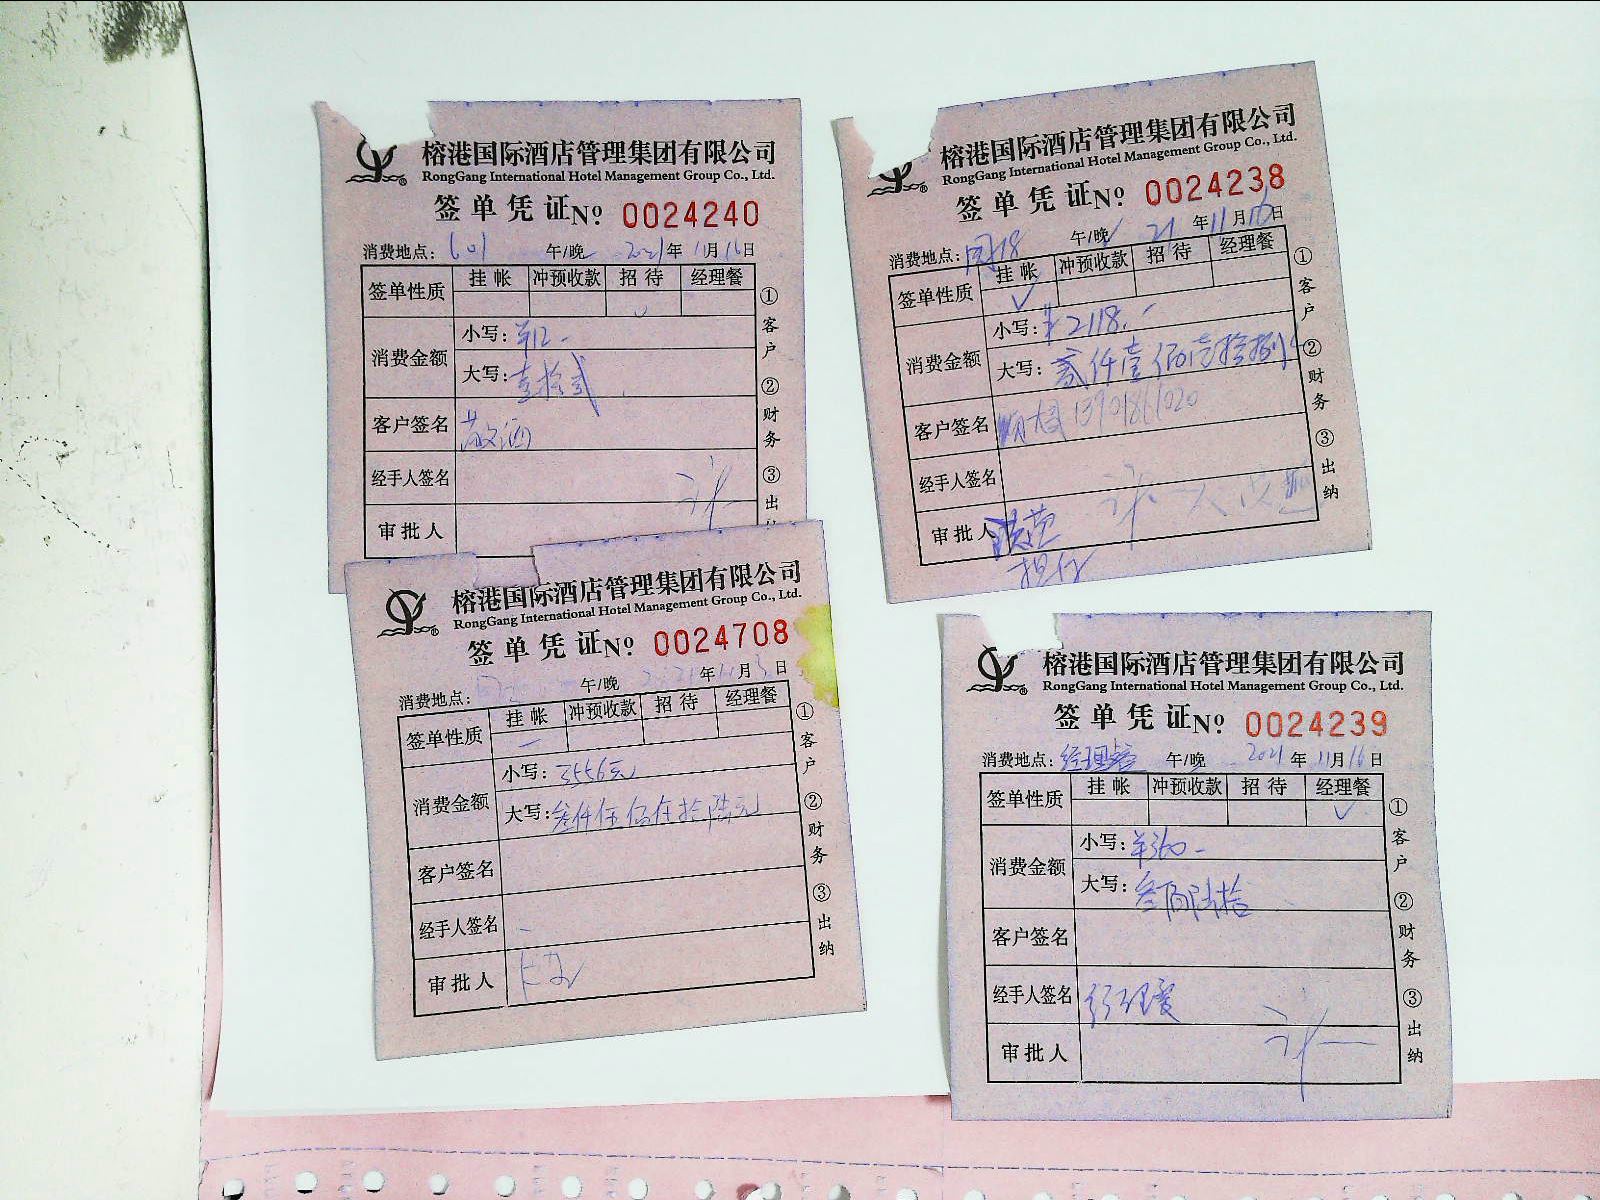 榕港国际酒店管理集团有限公司
RongGang International Hotel Management Group Co., Ltd.
签单凭证 No 0024240
消费地点: 601 午/晚 2021年11月16日
签单性质 挂帐 冲预收款 招待 经理餐
消费金额 小写: ¥12.-
大写: 壹拾贰
客户签名 敬酒
经手人签名
审批人
①客户 ②财务 ③出
榕港国际酒店管理集团有限公司
RongGang International Hotel Management Group Co., Ltd.
签单凭证 No 0024238
消费地点: 周18 午/晚 21年11月16日
签单性质 挂帐 冲预收款 招待 经理餐
消费金额 小写: ¥2118.-
大写: 贰仟壹佰壹拾捌
客户签名 13901861020
经手人签名
审批人
担保
①客户 ②财务 ③出纳
榕港国际酒店管理集团有限公司
RongGang International Hotel Management Group Co., Ltd.
签单凭证 No 0024708
消费地点: 午/晚 2021年11月3日
签单性质 挂帐 冲预收款 招待 经理餐
消费金额 小写: 3556元
大写: 叁仟伍佰伍拾陆元
客户签名
经手人签名
审批人
①客户 ②财务 ③出纳
榕港国际酒店管理集团有限公司
RongGang International Hotel Management Group Co., Ltd.
签单凭证 No 0024239
消费地点: 经理餐 午/晚 2021年11月16日
签单性质 挂帐 冲预收款 招待 经理餐
消费金额 小写: ¥360.-
大写: 叁佰陆拾
客户签名
经手人签名 经理餐
审批人
①客户 ②财务 ③出纳